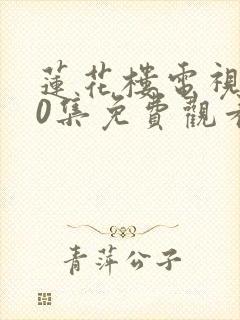 蓮花樓電視
0集免費觀看
青萍公子